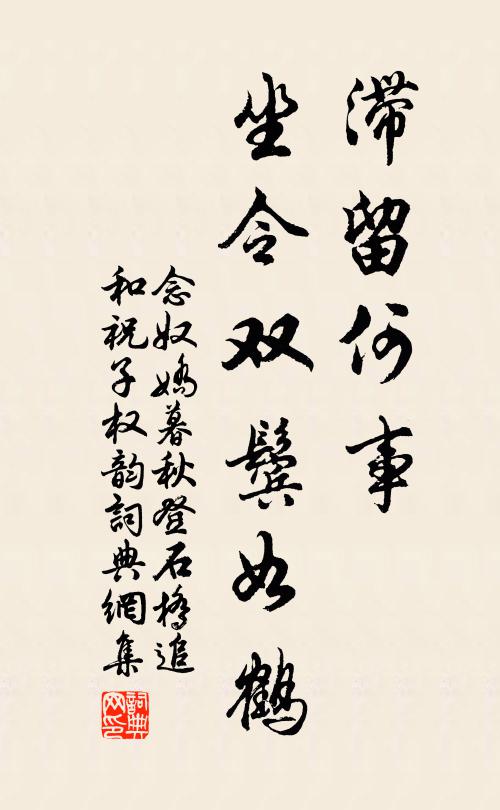 滯留何事
坐令双鬓如鶴
念奴嬌暮秋登石橋追
和祝子权韵詞典網集
詞典
网印